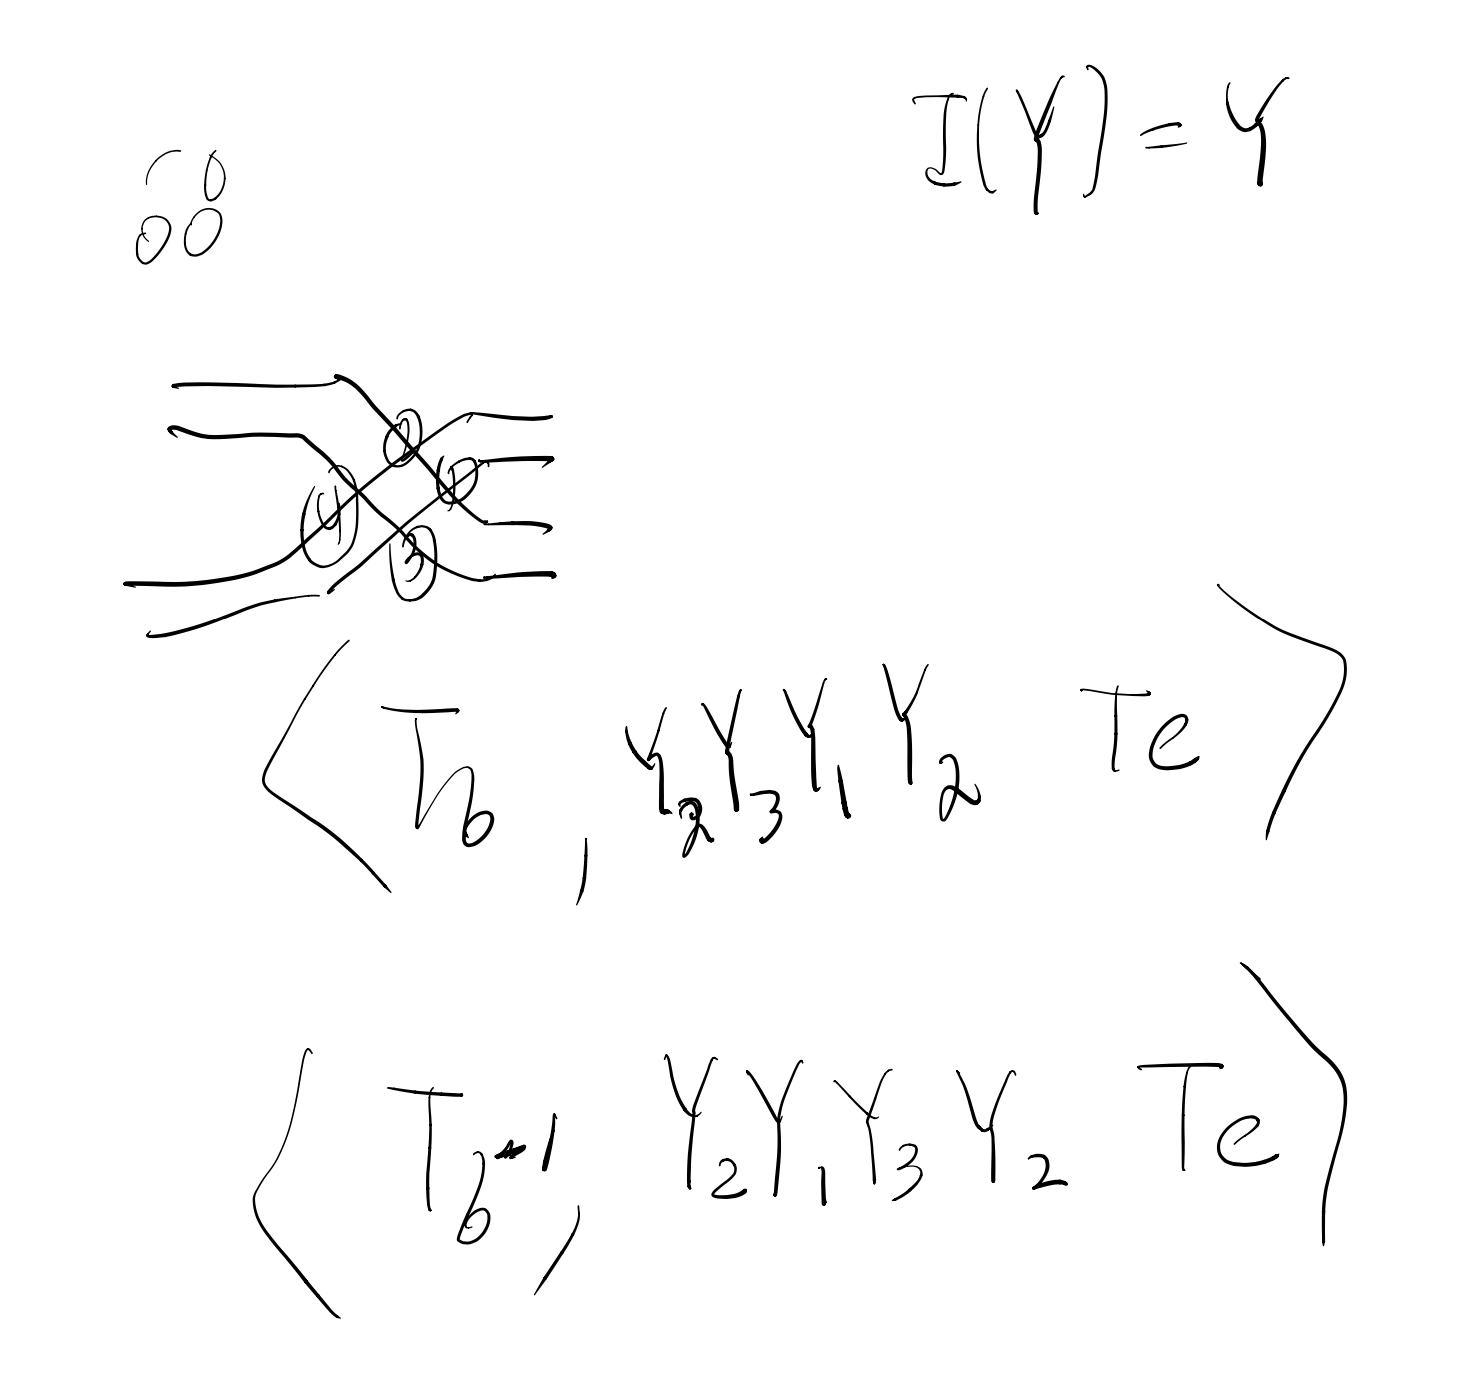 I(Y) = Y
1
1
4
3
⟨ T_b , Y_2 Y_3 Y_1 Y_2 Te ⟩
⟨ T_b^-1 , Y_2 Y_1 Y_3 Y_2 Te ⟩